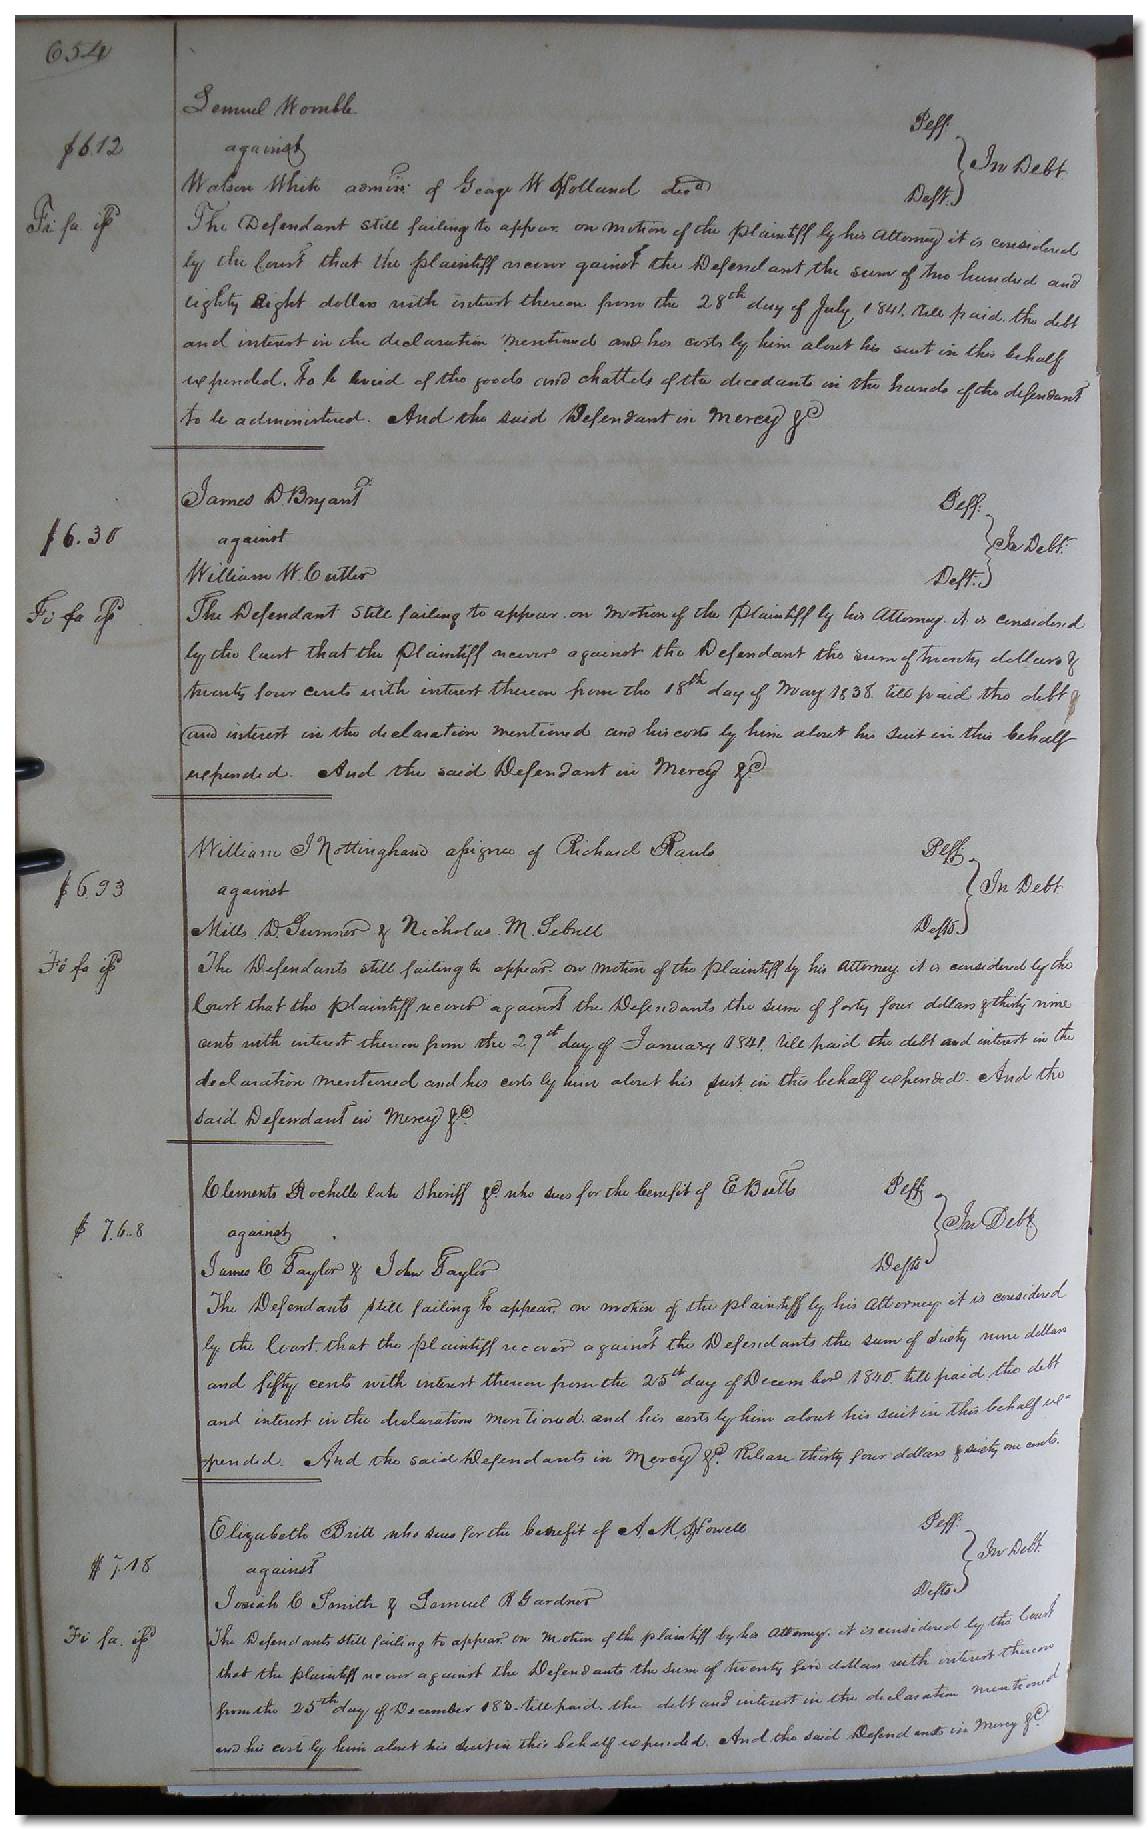 654
Lemuel Womble Peff.
$6.12 against In Debt
Watson White admin: of George W Holland decd Deft.
Fi. fa. iss
The Defendant still failing to appear on motion of the plaintiff by his attorney it is considered
by the Court that the plaintiff recover gainst the Defendant the sum of two hundred and
eighty eight dollars with interest thereon from the 28th day of July 1841. till paid. the debt
and interest in the declaration mentioned and his costs by him about his suit in this behalf
expended. To be levied of the goods and chattels of the decedants in the hands of the defendant
to be administered. And the said Defendant in Mercy &c
James D. Bryant Peff.
$6.30 against In Debt.
William W. Cutler Deft.
Fi fa iss
The Defendant still failing to appear. on motion of the plaintiff by his attorney. it is considered
by the Court that the Plaintiff recover against the Defendant the sum of twenty dollars &
twenty four cents with interest thereon from the 18th day of May 1838. till paid the debt
and interest in the declaration mentioned and his costs by him about his suit in this behalf
expended. And the said Defendant in Mercy &c
William J Nottingham assignee of Richard Rawls Peff.
$6.93 against In Debt
Mills D. Sumner & Nicholas M. Sebrell Defts.
Fi fa iss
The Defendants still failing to appear. on motion of the plaintiff by his attorney it is considered by the
Court that the plaintiff recover against the Defendants the sum of forty four dollars & thirty nine
cents with interest thereon from the 29th day of January 1841. till paid the debt and interest in the
declaration mentioned and his costs by him about his suit in this behalf expended. And the
said Defendant in Mercy &c
Clements Rochelle late Sheriff &c who sues for the benefit of E Butts Peff
$ 7.68 against In Debt
James C Taylor & John Taylor Defts
The Defendants still failing to appear. on motion of the plaintiff by his attorney it is considered
by the Court. that the plaintiff recover against the Defendants the sum of sixty nine dollars
and fifty cents with interest thereon from the 25th day of December 1840. till paid the debt
and interest in the declaration mentioned. and his costs by him about his suit in this behalf ex-
pended. And the said Defendants in Mercy &c. Release thirty four dollars & sixty one cents.
Elizabeth Britt who sues for the benefit of A. M. Howell Peff.
$ 7.18 against In Debt.
Josiah C Smith & Lemuel R Gardner Defts
Fi fa. iss
The Defendants still failing to appear. on motion of the plaintiff by his attorney. it is considered by the Court
that the plaintiff recover against the Defendants the sum of twenty five dollars with interest thereon
from the 25th day of December 183. till paid. the debt and interest in the declaration mentioned
and his costs by him about his suit in this behalf expended. And the said Defendants in Mercy &c